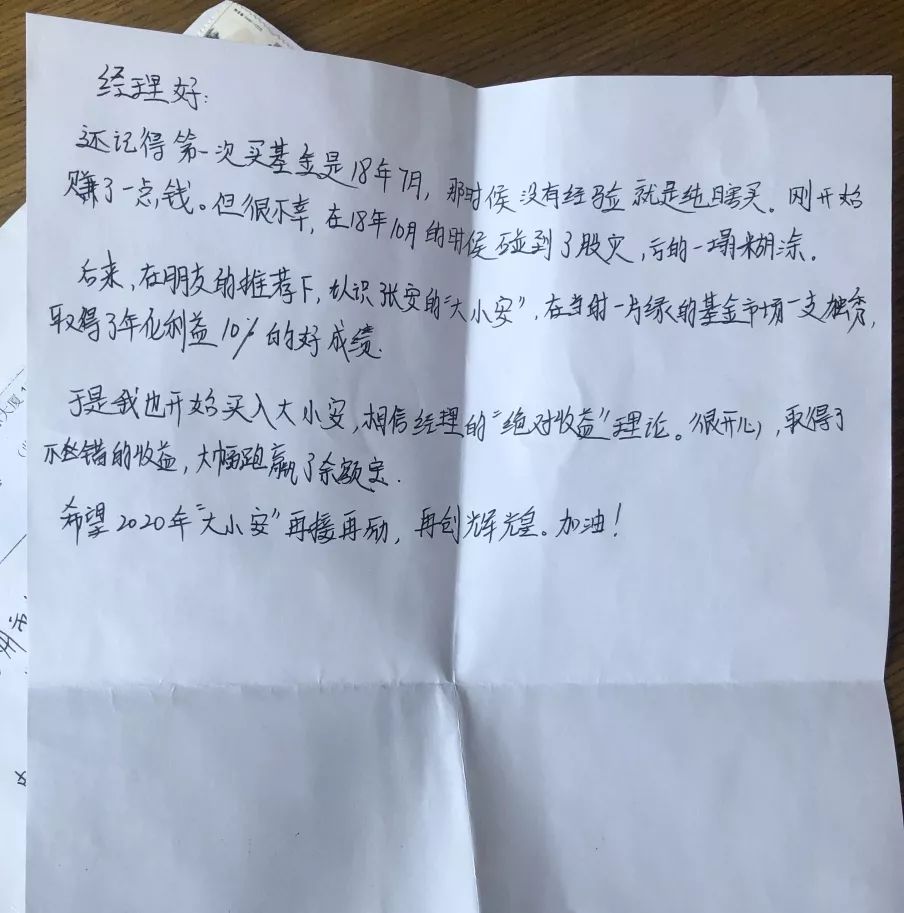 经理好:
还记得第一次买基金是18年7月,那时候没有经验就是纯瞎买。刚开始
赚了一点钱。但很不幸,在18年10月的时候碰到了股灾,亏的一塌糊涂。
后来,在朋友的推荐下,认识张安的“大小安”,在当时一片绿的基金市场一支独秀,
取得了年化利益10%的好成绩.
于是我也开始买入大小安,相信经理的“绝对收益”理论。很开心,取得了
不错的收益,大幅跑赢了余额宝.
希望2020年“大小安”再接再励,再创辉煌。加油!
大厦